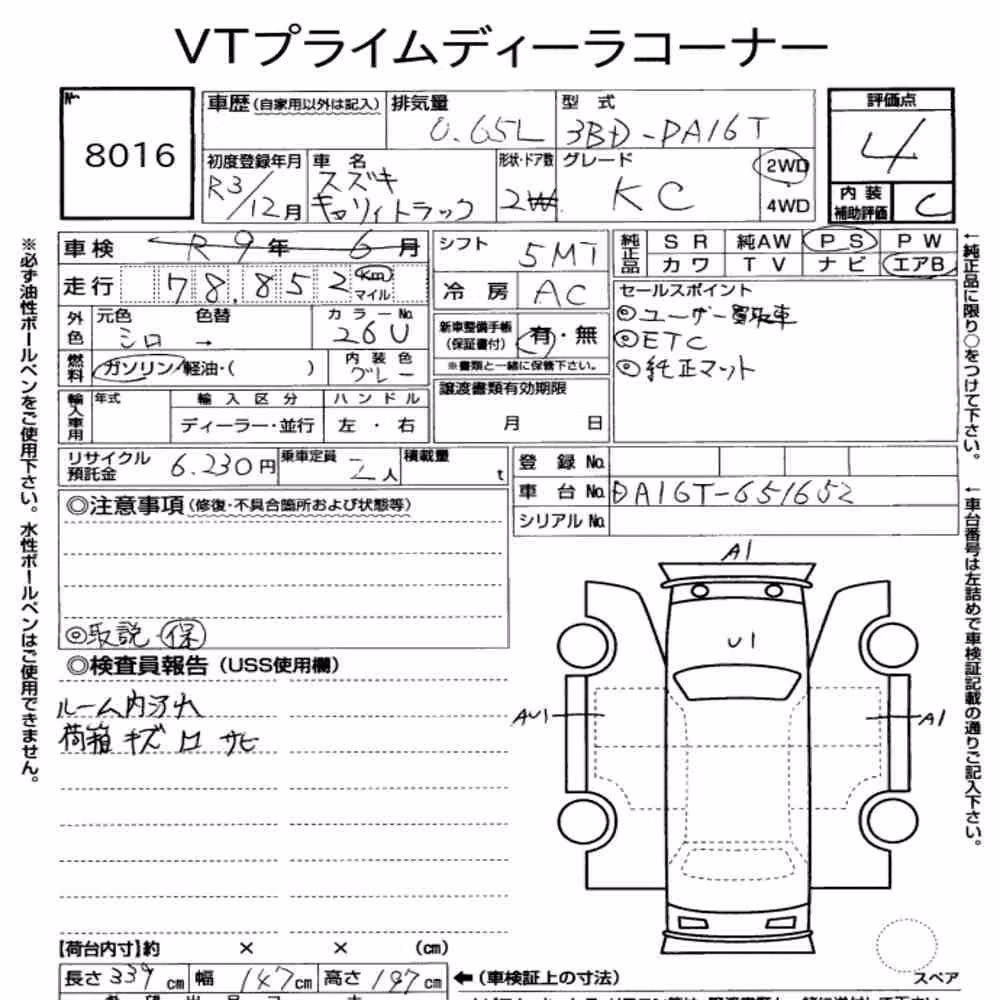 VTプライムディーラコーナー
No.
8016
車歴(自家用以外は記入) 排気量 型式
0.65L 3BD-DA16T
評価点
4
初度登録年月 車名 形状・ドア数 グレード 2WD
R3/12月 スズキ
キャリィトラック 2W KC 4WD
内装
補助評価 C
車検 R9年6月
シフト 5MT
純正品 SR 純AW PS PW
カワ TV ナビ エアB
走行 78,852 km
マイル
冷房 AC
セールスポイント
◎ユーザー買取車
◎ETC
◎純正マット
外色 元色 色替 カラーNo.
シロ → 26U
新車整備手帳
(保証書付) 有・無
※書類と一緒に保管下さい。
燃料 ガソリン/軽油・( ) 内装色
グレー
譲渡書類有効期限
月 日
輸入車用 年式 輸入区分 ハンドル
ディーラー・並行 左・右
リサイクル
預託金 6.230円 乗車定員 2人 積載量 t
登録No.
車台No. DA16T-651652
シリアルNo.
◎注意事項(修復・不具合箇所および状態等)
◎取説 保
◎検査員報告(USS使用欄)
ルーム内汚大
荷箱キズ凹サビ
A1
U1
AU1
A1
【荷台内寸】約 × × (cm)
長さ 339cm 幅 147cm 高さ 187cm ←(車検証上の寸法)
スペア
※必ず油性ボールペンをご使用下さい。水性ボールペンはご使用できません。
←純正品に限り○をつけて下さい。
←車台番号は左詰めで車検証記載の通りご記入下さい。